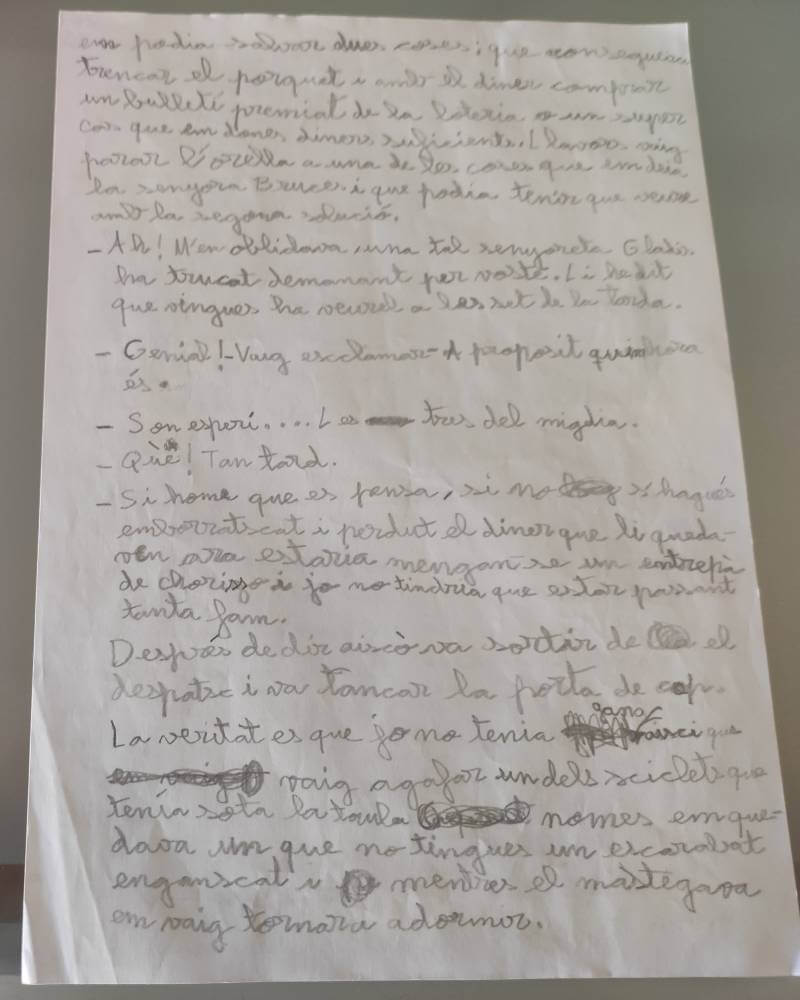 em podia salvar dues coses; que consegueixi
trencar el porquet i amb el diner comprar
un bulletí premiat de la loteria o un super
cas que em dones diners suficients. Llavors vaig
parar l'orella a una de les coses que em deia
la senyora Bruces i que podia tenir que veure
amb la segona solució.
- Ah! M'en oblidava, una tal senyoreta Gladis.
ha trucat demanant per vosté. Li he dit
que vingues ha veurel a les set de la tarda.
- Genial!-Vaig escclamar-A proposit quin hora
és.
- Son esperi.... Les tres del migdia.
- Què! Tan tard.
- Si home que es pensa, si no s'hagués
emborratscat i perdut el diner que li queda-
ven ara estaria mengan-se un entrepà
de chorisso i jo no tindria que estar passant
tanta fam.
Després de dir aiscò va sortir de el
despatsc i va tancar la porta de cop.
La veritat es que jo no tenia gana,
aisci que
vaig agafar un dels sciclets que
tenía sota la taula nomes em que-
dava un que no tingues un escarabat
enganscat i mentres el mastegava
em vaig tornar a adormir.